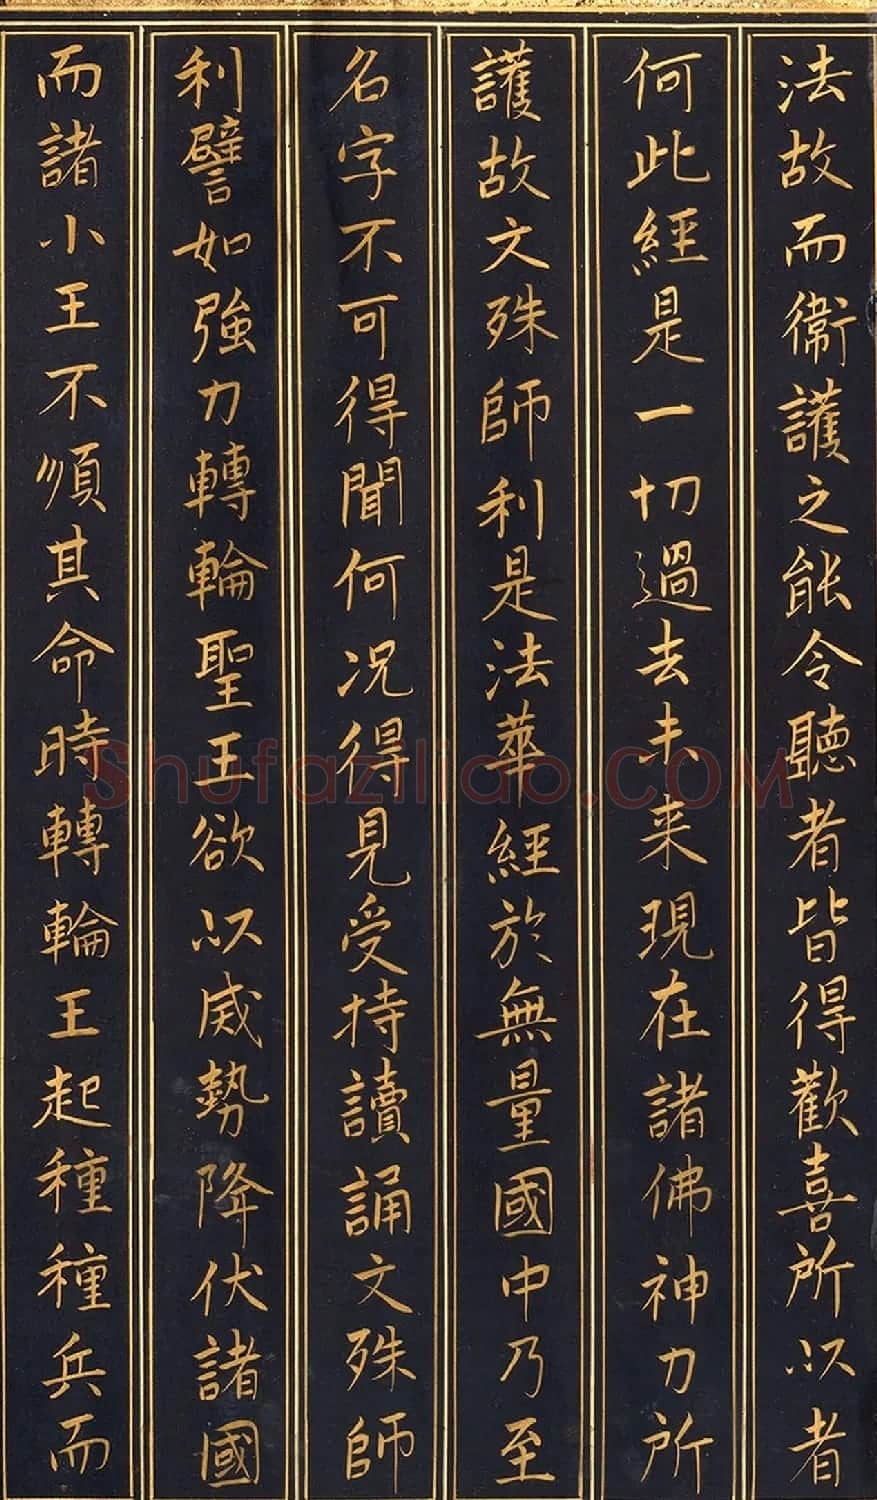 法故而衞護之能令聽者皆得歡喜所以者
何此經是一切過去未来現在諸佛神力所
護故文殊師利是法華經於無量國中乃至
名字不可得聞何况得見受持讀誦文殊師
利譬如強力轉輪聖王欲以威勢降伏諸國
而諸小王不順其命時轉輪王起種種兵而
Shufaziliao.COM